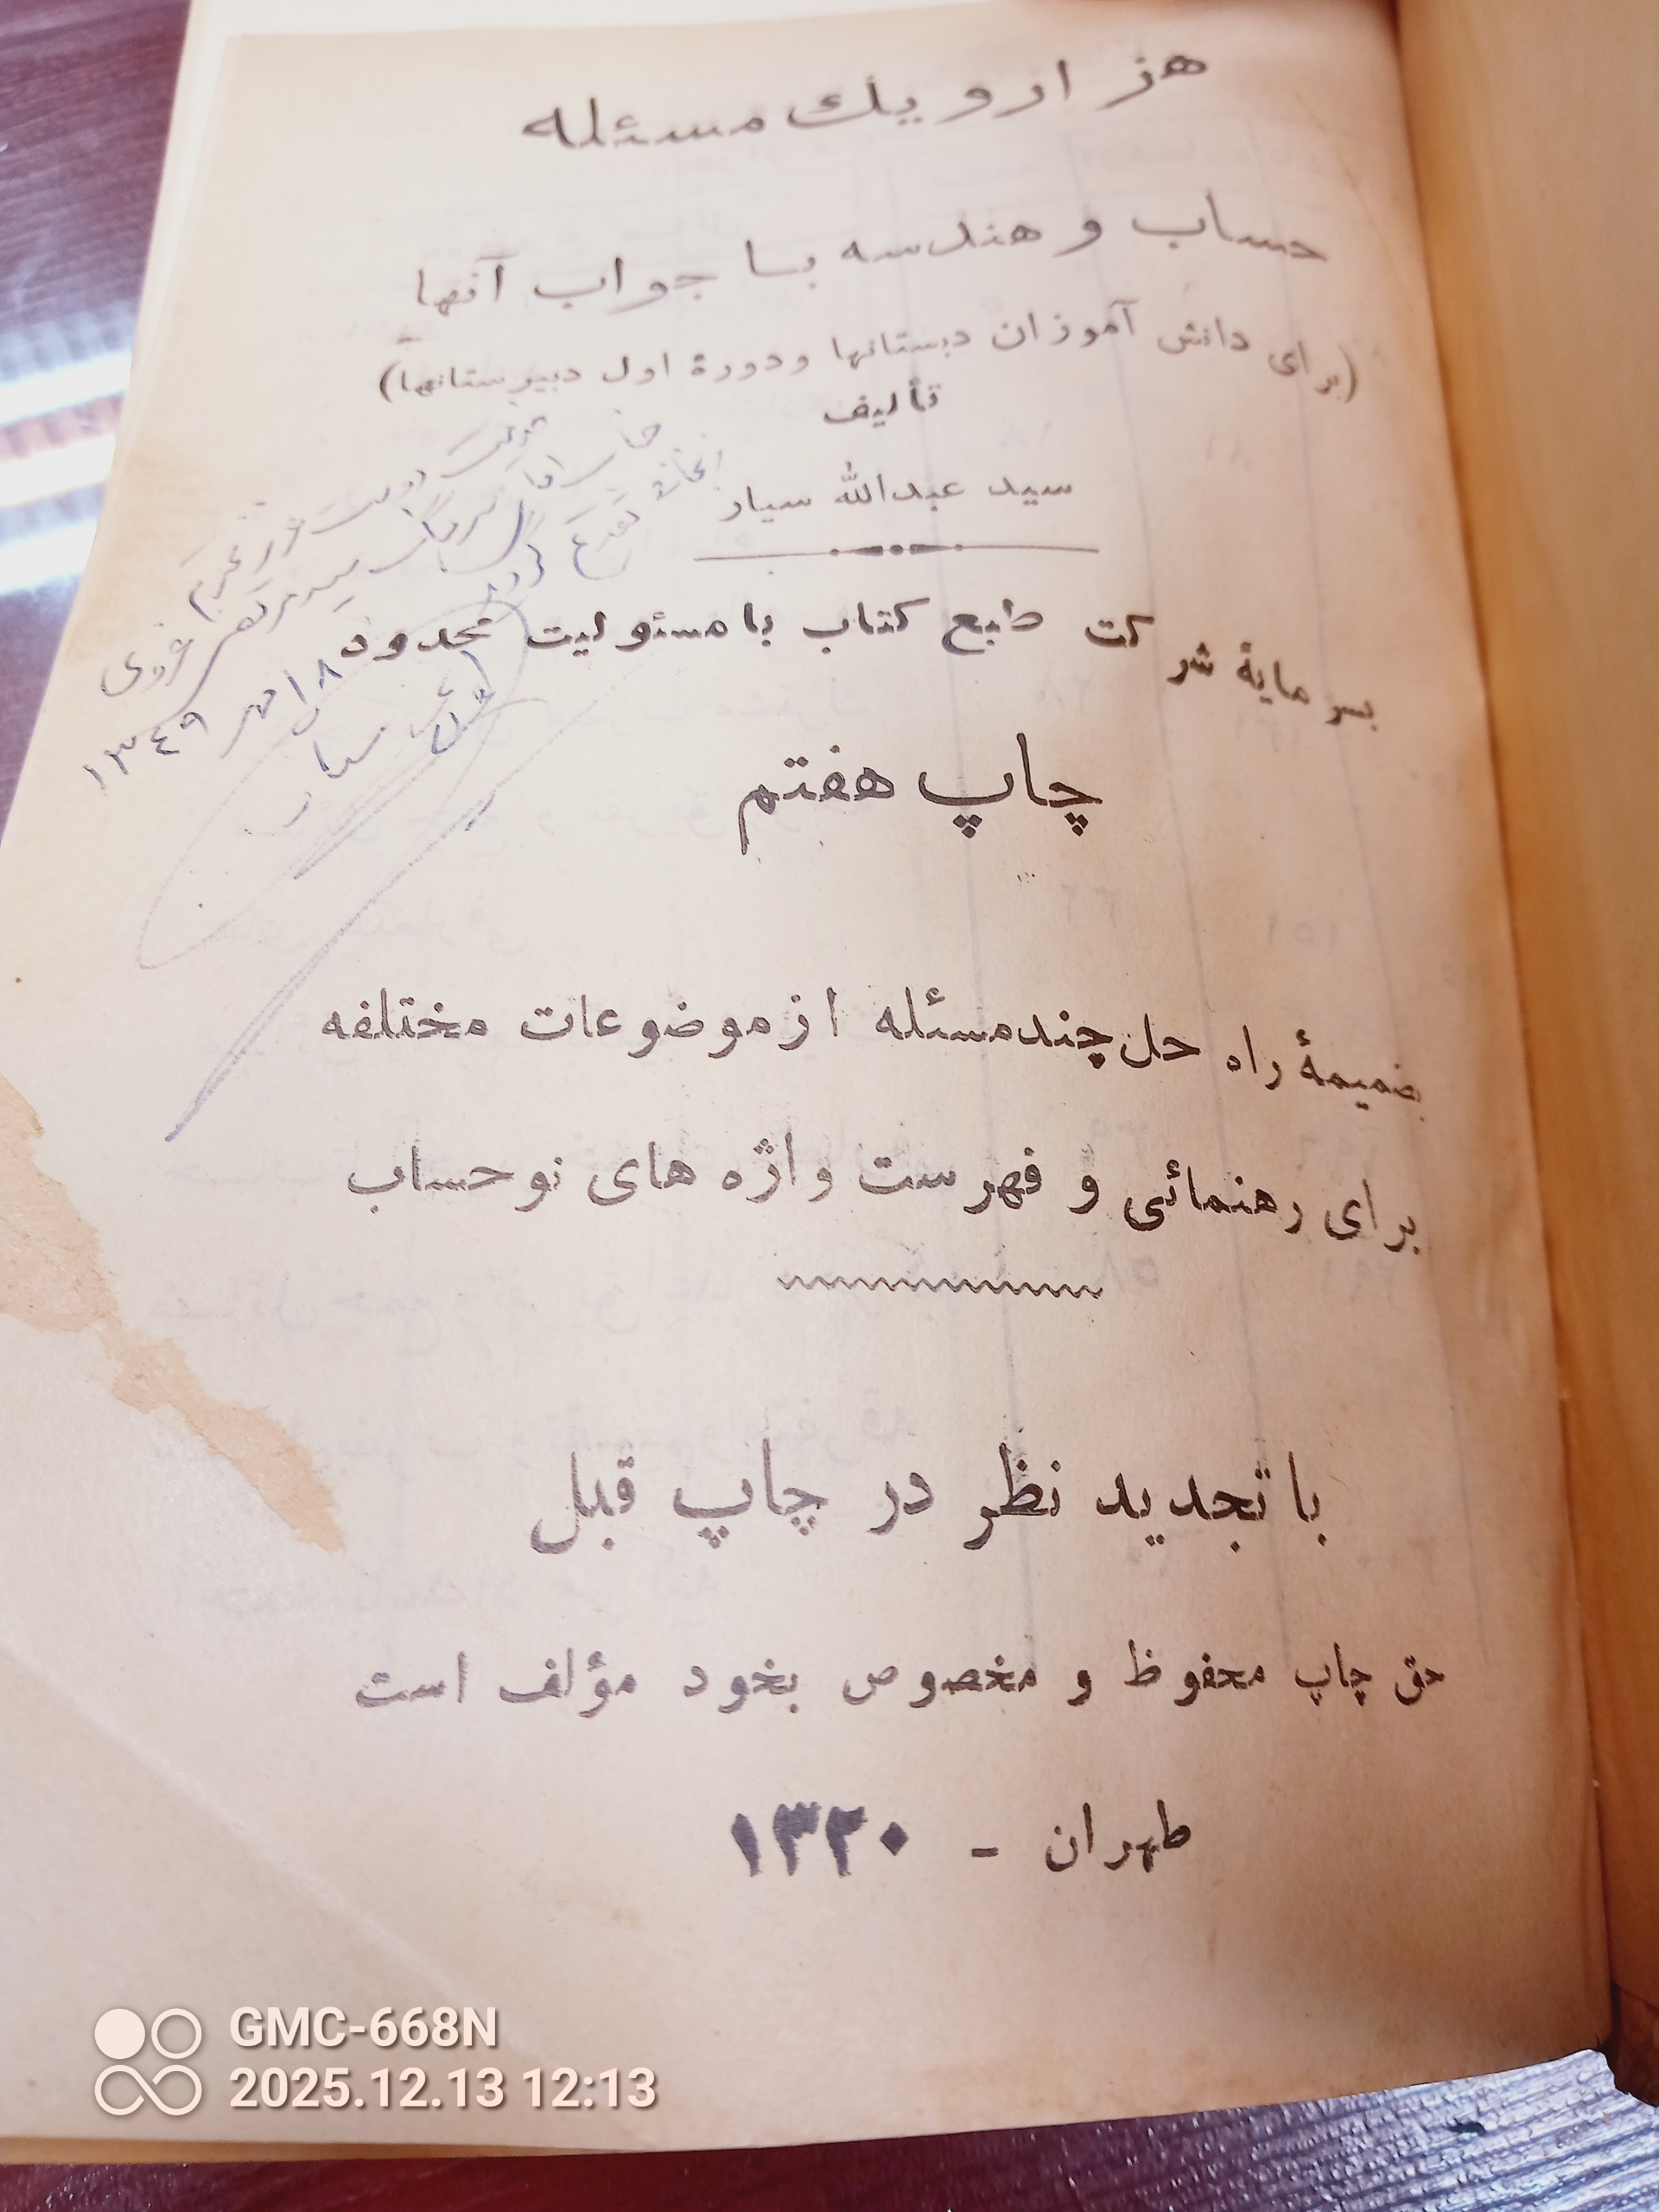 هزار و يك مسئله
حساب و هندسه با جواب آنها
(برای دانش آموزان دبستانها و دورهٔ اول دبیرستانها)
تألیف
سید عبدالله سیار
بسرمایهٔ شرکت طبع کتاب با مسئولیت محدود
۱۸ مهر ۱۳۴۹
چاپ هفتم
بضمیمهٔ راه حل چند مسئله از موضوعات مختلفه
برای رهنمائی و فهرست واژه های نو حساب
با تجدید نظر در چاپ قبل
حق چاپ محفوظ و مخصوص بخود مؤلف است
طهران - ۱۳۲۰
GMC-668N
2025.12.13 12:13